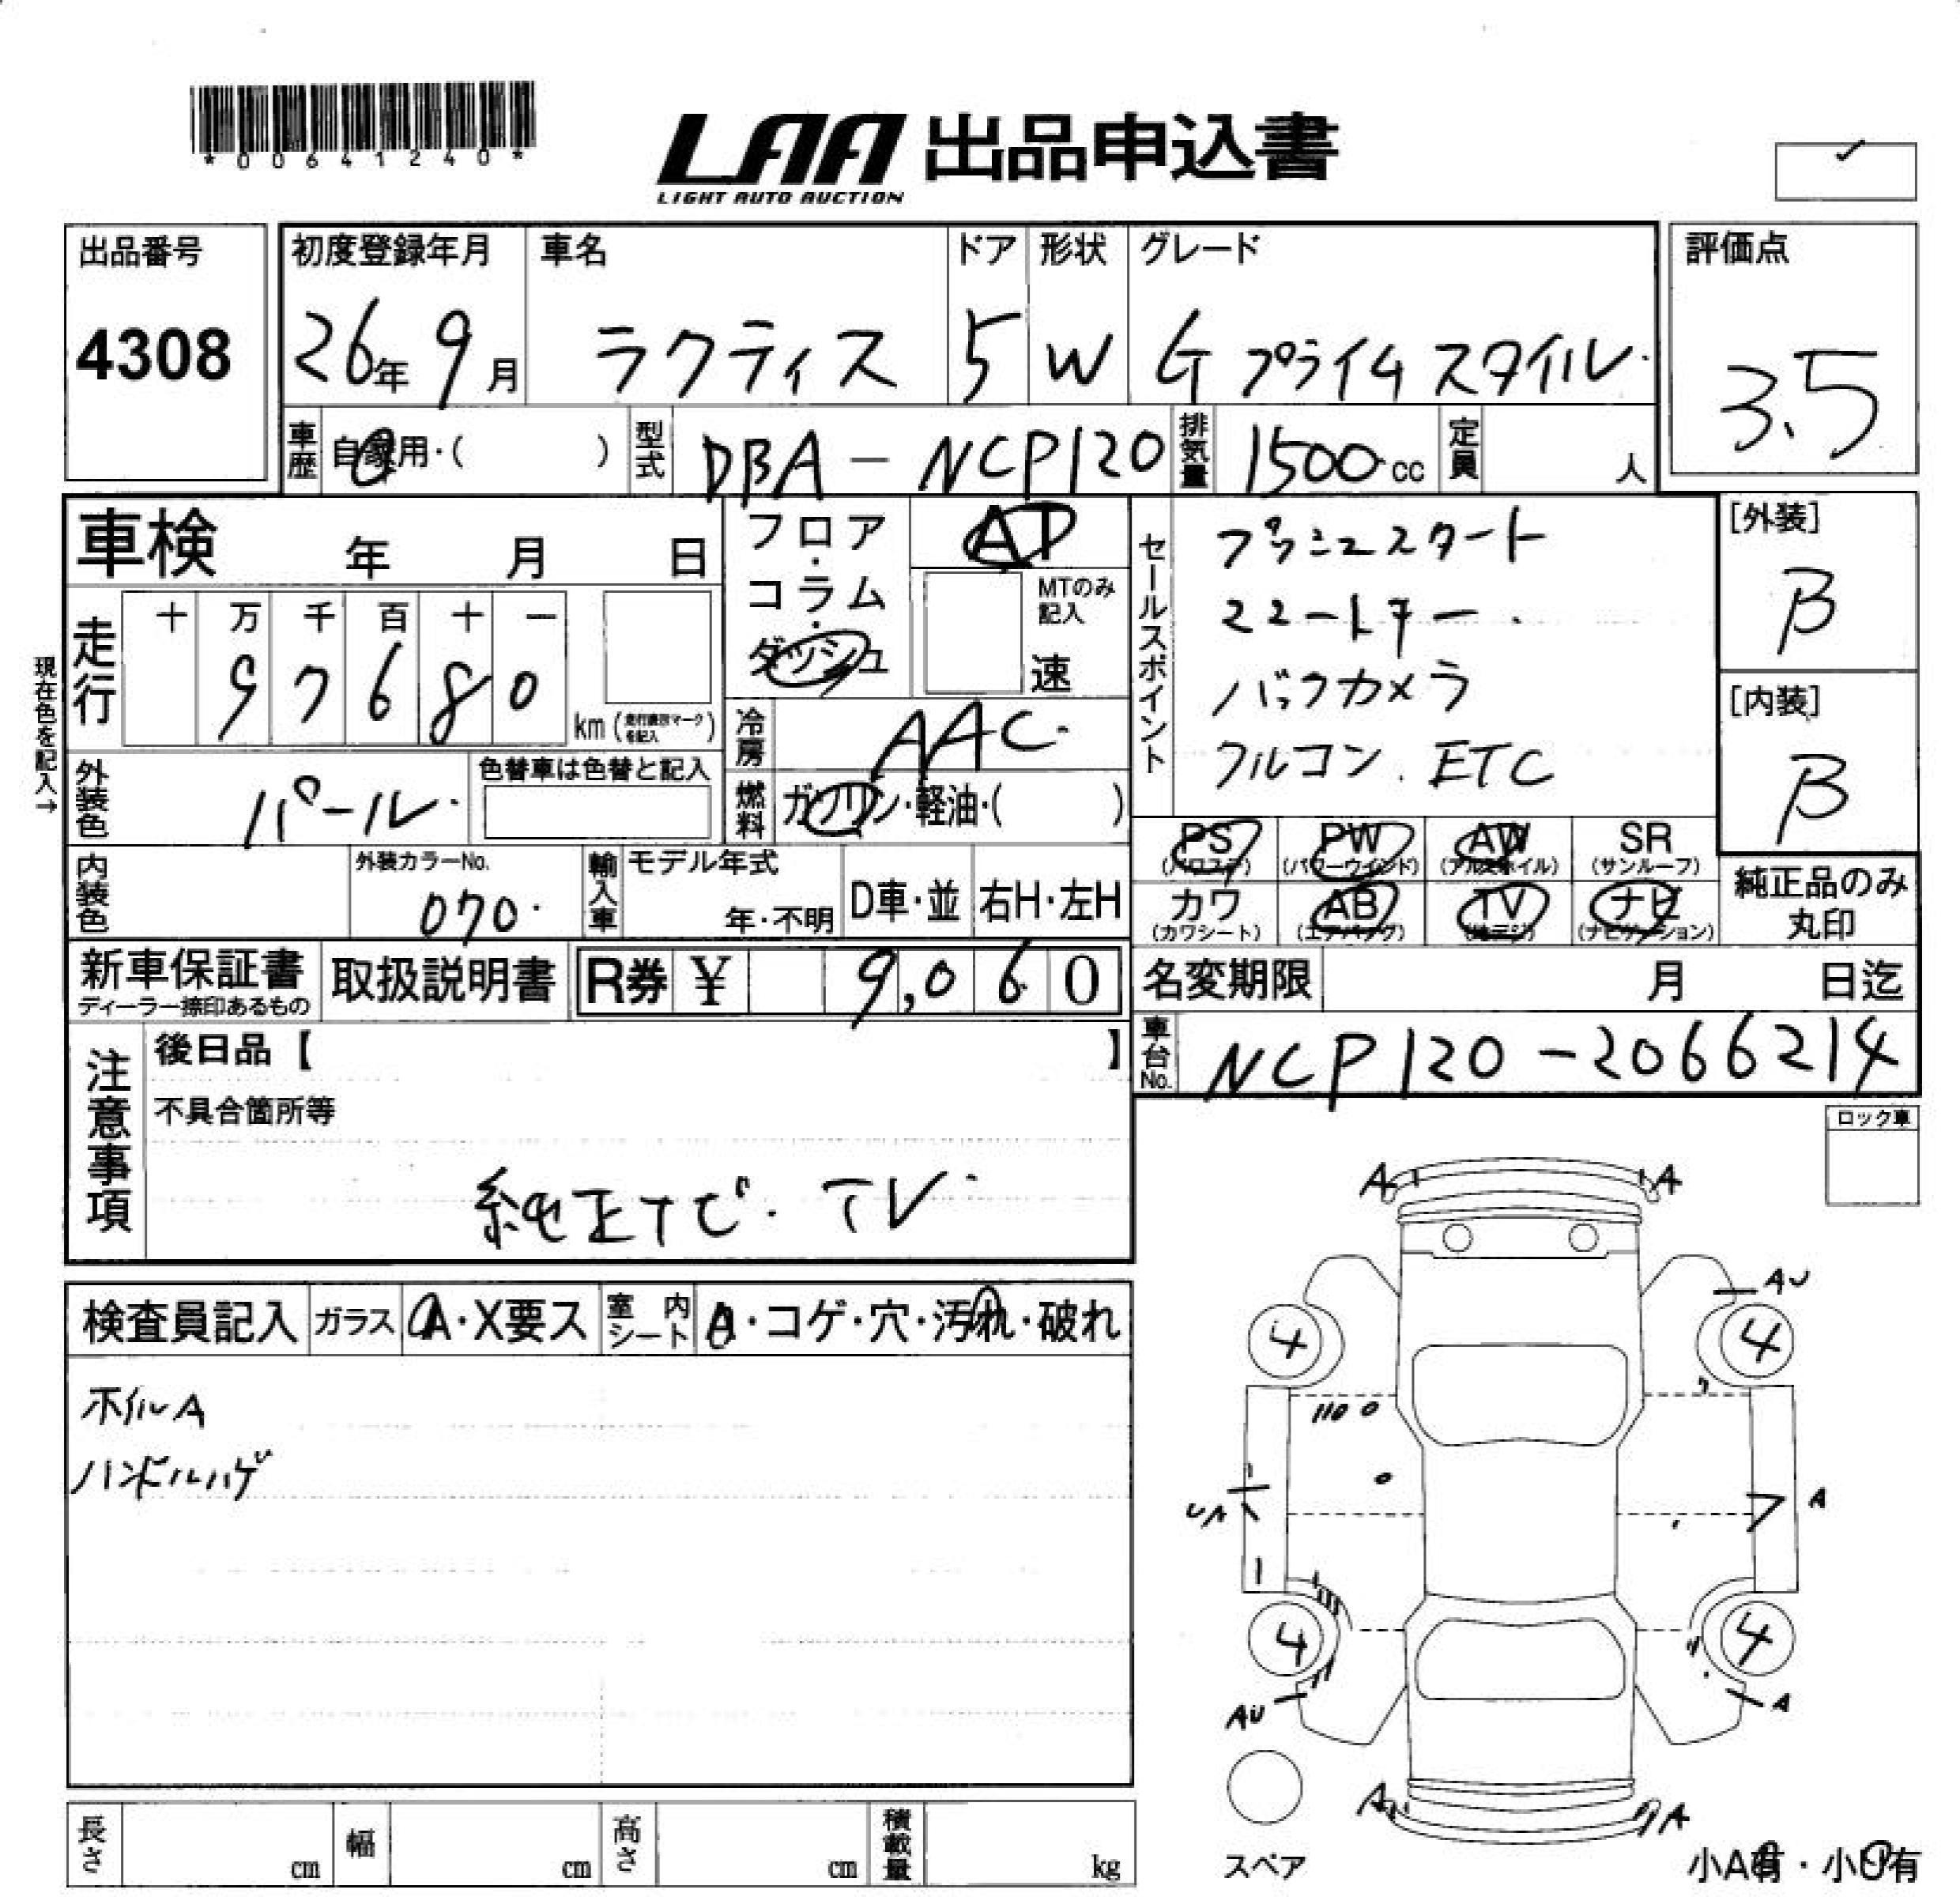 *00641240*
LAA 出品申込書
LIGHT AUTO AUCTION
出品番号
4308
初度登録年月
26年 9月
車名
ラクティス
ドア
5
形状
W
グレード
G プライムスタイル
評価点
3.5
車歴 自家用・( )
型式 DBA-NCP120
排気量 1500cc
定員 人
車検 年 月 日
フロア・コラム・ダッシュ
AT
MTのみ記入
速
セールスポイント
プッシュスタート
スマートキー
バックカメラ
クルコン. ETC
[外装]
B
[内装]
B
現在色を記入→
走行
十 万 千 百 十 一
9 7 6 8 0
km (走行疑義マークを記入)
冷房 AAC
外装色 パール
色替車は色替と記入
燃料 ガソリン・軽油・( )
PS (パワステ)
PW (パワーウインド)
AW (アルミホイル)
SR (サンルーフ)
カワ (カワシート)
AB (エアバッグ)
TV (地デジ)
ナビ (ナビゲーション)
純正品のみ丸印
内装色
外装カラーNo.
070
輸入車
モデル年式
年・不明
D車・並
右H・左H
新車保証書
ディーラー捺印あるもの
取扱説明書
R券 ¥ 9,060
名変期限 月 日迄
車台No. NCP120-2066214
注意事項
後日品【 】
不具合箇所等
純正ナビ. TV
ロック車
検査員記入
ガラス A・X要ス
室内シート
・コゲ・穴・汚れ・破れ
ホイルA
ハンドルハゲ
A A
AU
4 4
UA
A
4 4
AU
A
A A
スペア
小A有・小U有
長さ cm
幅 cm
高さ cm
積載量 kg